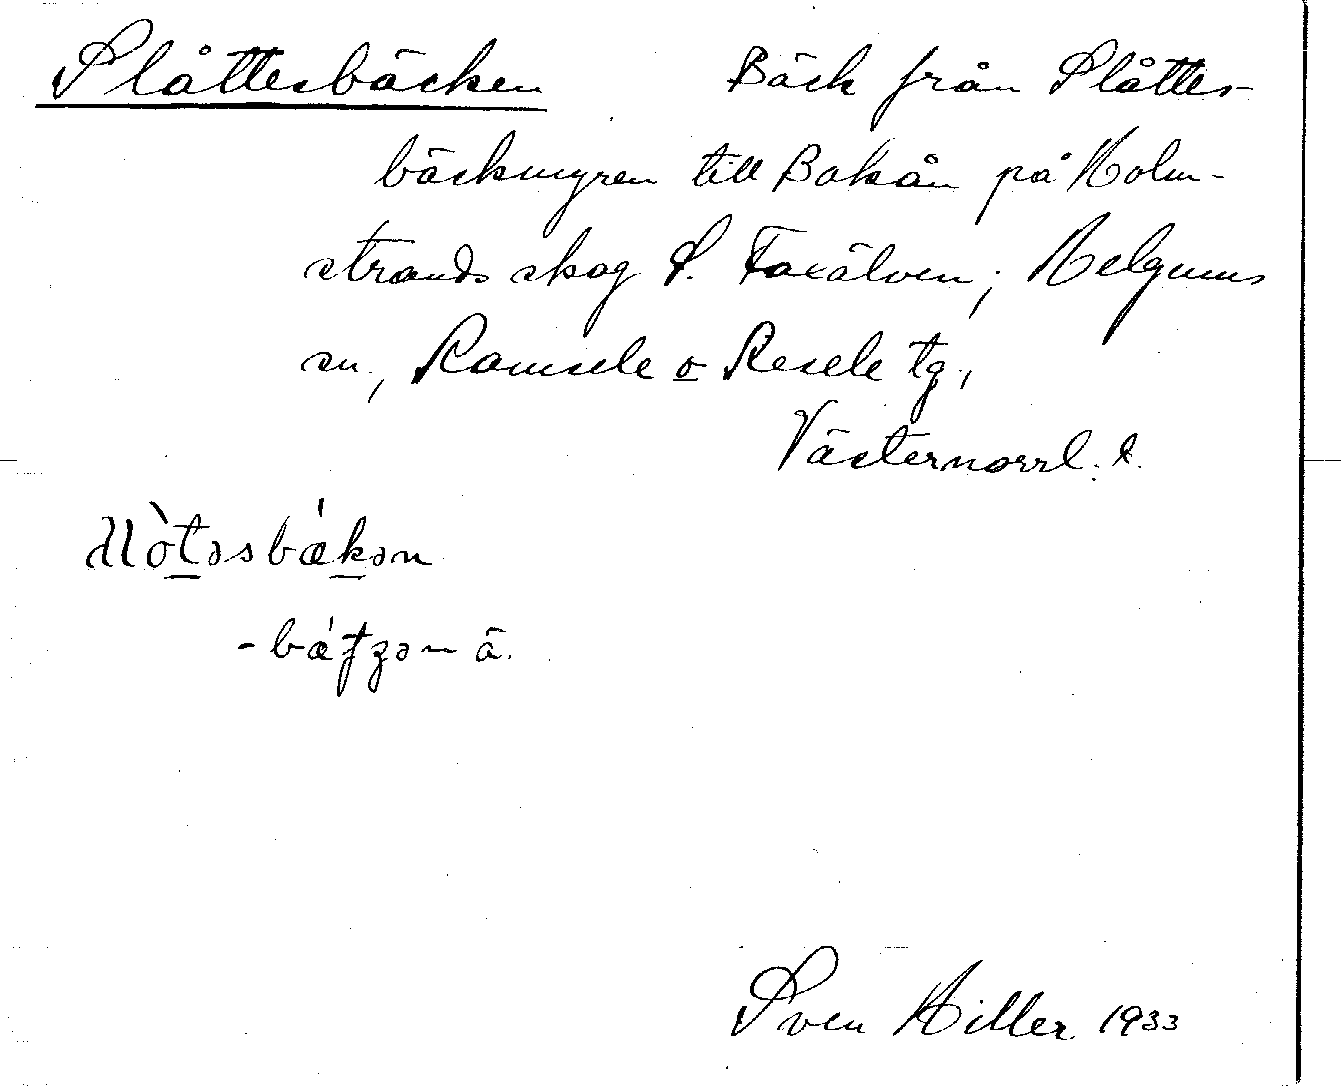 Slåttesbäcken Bäck från Slåttes-
bäckmyren till Bakån på Holm-
strands skog S. Faxälven; Helgums
sn, Ramsele o Resele tg,
Västernorrl. l.
-bætʒən ä.
Sven Hiller 1933